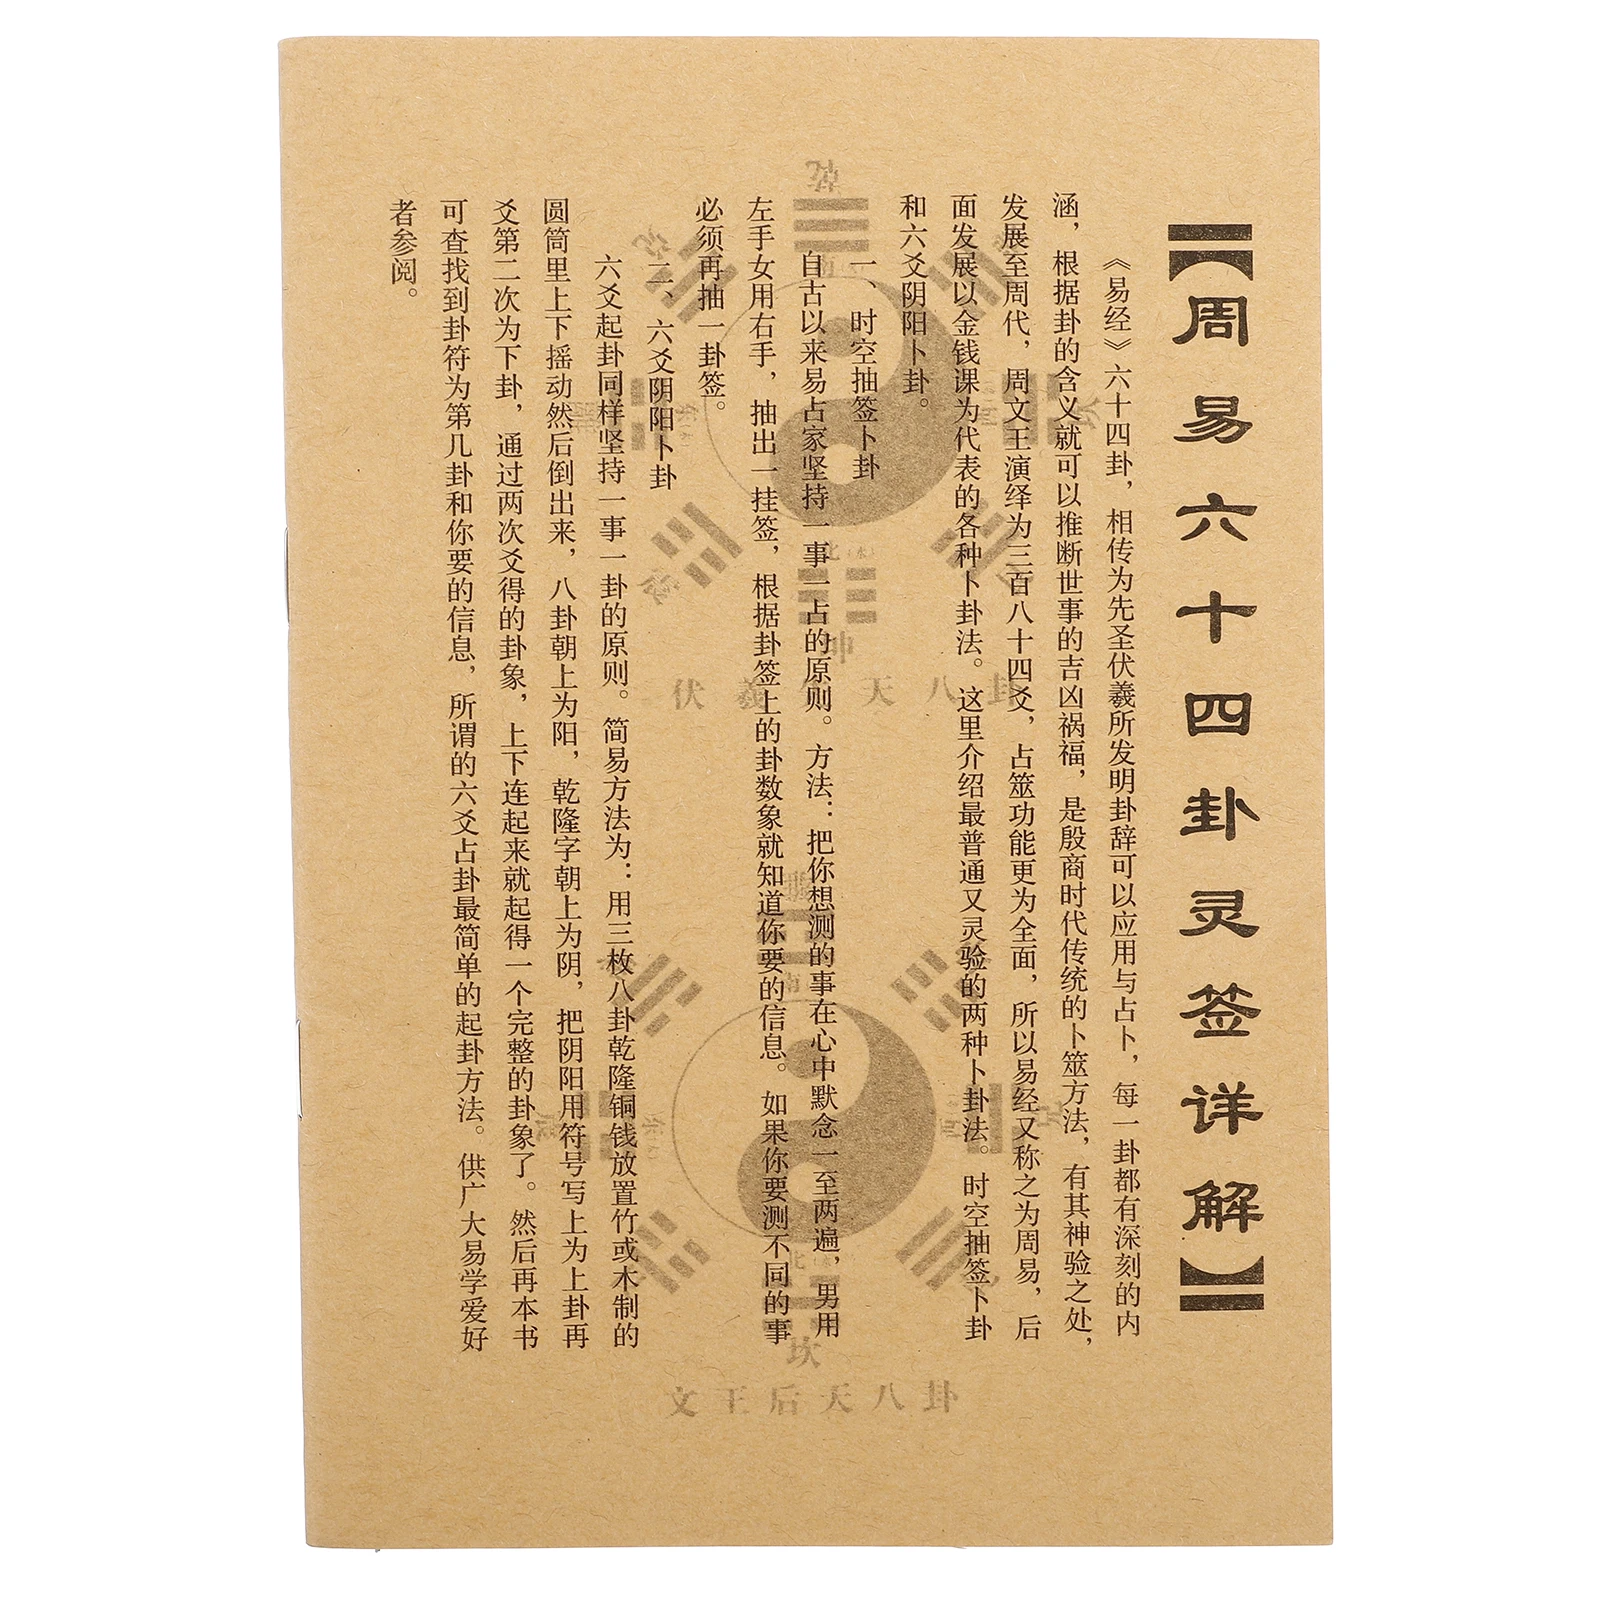 【周易六十四卦灵签详解】
《易经》六十四卦，相传为先圣伏羲所发明卦辞可以应用与占卜，每一卦都有深刻的内
涵，根据卦的含义就可以推断世事的吉凶祸福，是殷商时代传统的卜筮方法，有其神验之处，
发展至周代，周文王演绎为三百八十四爻，占筮功能更为全面，所以易经又称之为周易，后
面发展以金钱课为代表的各种卜卦法。这里介绍最普通又灵验的两种卜卦法。时空抽签卜卦
和六爻阴阳卜卦。
一、时空抽签卜卦
自古以来易占家坚持一事一占的原则。方法：把你想测的事在心中默念一至两遍，男用
左手女用右手，抽出一挂签，根据卦签上的卦数象就知道你要的信息。如果你要测不同的事
必须再抽一卦签。
二、六爻阴阳卜卦
六爻起卦同样坚持一事一卦的原则。简易方法为：用三枚八卦乾隆铜钱放置竹或木制的
圆筒里上下摇动然后倒出来，八卦朝上为阳，乾隆字朝上为阴，把阴阳用符号写上为上卦再
爻第二次为下卦，通过两次爻得的卦象，上下连起来就起得一个完整的卦象了。然后再本书
可查找到卦符为第几卦和你要的信息，所谓的六爻占卦最简单的起卦方法。供广大易学爱好
者参阅。
乾
北（水）
坤
伏羲先天八卦
南
北
坎
文王后天八卦